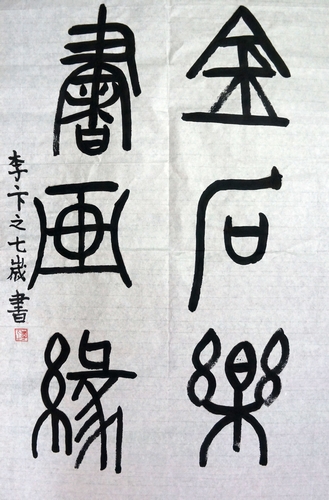 金石樂
書画緣
李卞之七歲書